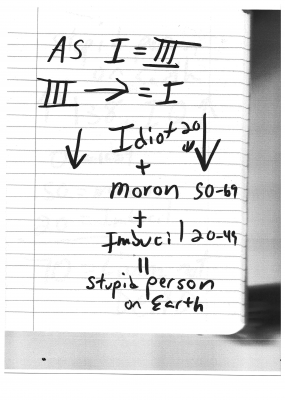 AS I = III
III → = I
Idiot 20
+
moron 50-69
+
Imbucil 20-49
=
stupid person
on Earth